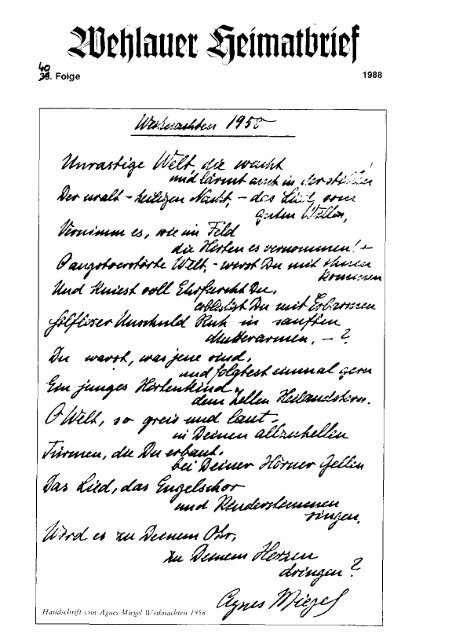 Wehlauer Heimatbrief
40
39. Folge
1988
Weihnachten 1958
Unrastige Welt, die wacht
und lärmt auch in der stillen
Der uralt-heiligen Nacht, - das Lied vom
guten Willen,
Vernimm es, wie im Feld
die Hirten es vernommen! -
O angstverstörte Welt, - wirst Du mit ihnen
kommen
Und kniest voll Ehrfurcht Du,
erblickst Du mit Erbarmen
Hilfloser Unschuld Ruh in sanften
Mutterarmen, - ?
Du warst, was jene sind,
und folgtest einmal gern
Ein junges Hirtenkind
dem hellen Heilandstern.
O Welt, so greis und laut,
in Deinen allzuhellen
Türmen, die Du erbaut,
bei Deiner Hörner Gellen
Das Lied, das Engelchor
und Kinderstimmen
singen,
Wird es zu Deinem Ohr,
zu Deinem Herzen
dringen?
Agnes Miegel
Handschrift von Agnes Miegel Weihnachten 1958